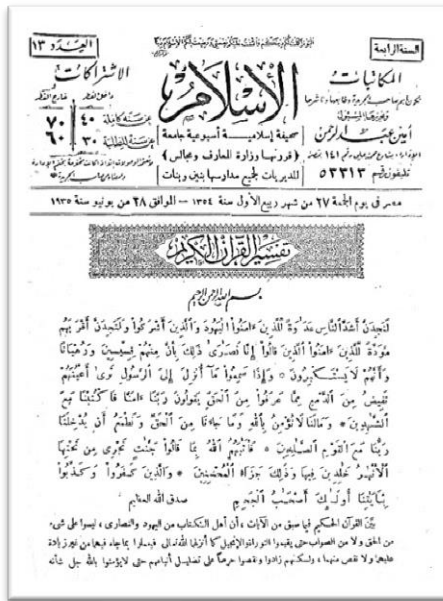 السنة الرابعة
العدد ١٣
المكاتبات
الإسلام
الاشتراكات
داخل القطر
خارج القطر
أمين عبد الرحمن
صحيفة إسلامية أسبوعية جامعة
عن سنة كاملة ٤٠ ٧٠
( قررتها وزارة المعارف ومجالس )
عن سنة للطلبة ٣٠ ٦٠
تليفون رقم ٥٣٣١٣
للمديريات لجميع مدارسها بنين وبنات
مصر فى يوم الجمعة ٢٧ من شهر ربيع الأول سنة ١٣٥٤ — الموافق ٢٨ من يونيو سنة ١٩٣٥
تفسير القرآن الكريم
بسم الله الرحمن الرحيم
لَتَجِدَنَّ أَشَدَّ النَّاسِ عَدَاوَةً لِلَّذِينَ ءَامَنُوا الْيَهُودَ وَالَّذِينَ أَشْرَكُوا وَلَتَجِدَنَّ أَقْرَبَهُم
مَوَدَّةً لِلَّذِينَ ءَامَنُوا الَّذِينَ قَالُوا إِنَّا نَصَارَى ذَلِكَ بِأَنَّ مِنْهُمْ قِسِّيسِينَ وَرُهْبَانًا
وَأَنَّهُمْ لَا يَسْتَكْبِرُونَ * وَإِذَا سَمِعُوا مَا أُنْزِلَ إِلَى الرَّسُولِ تَرَى أَعْيُنَهُمْ
تَفِيضُ مِنَ الدَّمْعِ مِمَّا عَرَفُوا مِنَ الْحَقِّ يَقُولُونَ رَبَّنَا ءَامَنَّا فَاكْتُبْنَا مَعَ
الشَّهِدِينَ * وَمَا لَنَا لَا نُؤْمِنُ بِاللَّهِ وَمَا جَاءَنَا مِنَ الْحَقِّ وَنَطْمَعُ أَن يُدْخِلَنَا
رَبُّنَا مَعَ الْقَوْمِ الصَّلِحِينَ * فَأَثَبَهُمُ اللَّهُ بِمَا قَالُوا جَنَّتٍ تَجْرِى مِن تَحْتِهَا
الْأَنْهَرُ خَلِدِينَ فِيهَا وَذَلِكَ جَزَاءُ الْمُحْسِنِينَ * وَالَّذِينَ كَفَرُوا وَكَذَّبُوا
بِئَايَتِنَا أُولَئِكَ أَصْحَبُ الْجَحِيمِ صدق الله العظيم
بيّن القرآن الحكيم فيما سبق من الآيات، أن أهل الكتاب من اليهود والنصارى، ليسوا على شىء
من الحق ولا من الصواب حتى يقيموا التوراة والإنجيل كما أنزلهما الله تعالى فيعملوا بما جاء فيهما من غير زيادة
عليهما ولا نقص منهما، ولكنهم زادوا ونقصوا حرصاً على تضليل أتباعهم حتى لا يؤمنوا بالله جل شأنه